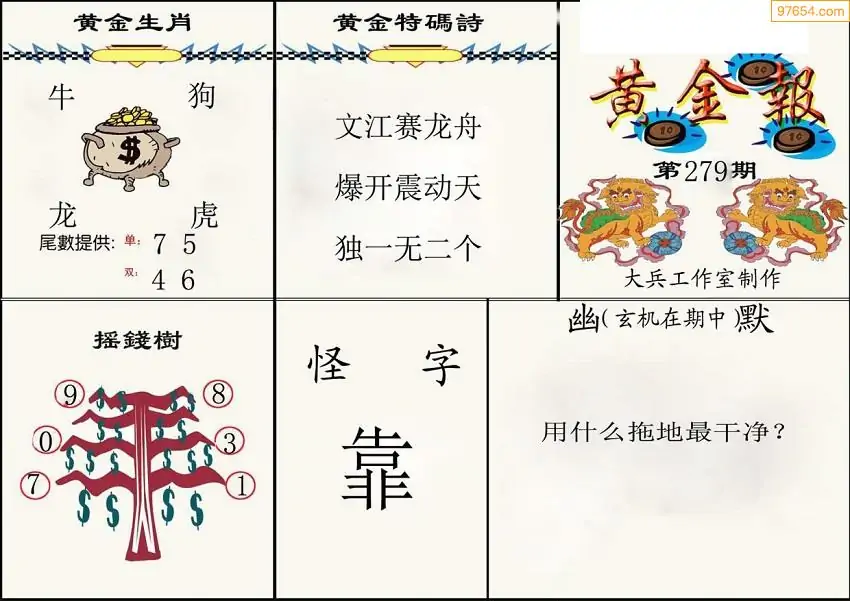 97654.com
黄金生肖
牛 狗
$
龙 虎
尾數提供: 单: 7 5
双: 4 6
黄金特碼詩
文江赛龙舟
爆开震动天
独一无二个
黄金報
10
10
10
第279期
大兵工作室制作
摇錢樹
9 8
0 3
7 1
$ $ $ $
$ $ $ $
$ $ $ $
$ $ $ $
怪 字
靠
幽(玄机在期中)默
用什么拖地最干净?